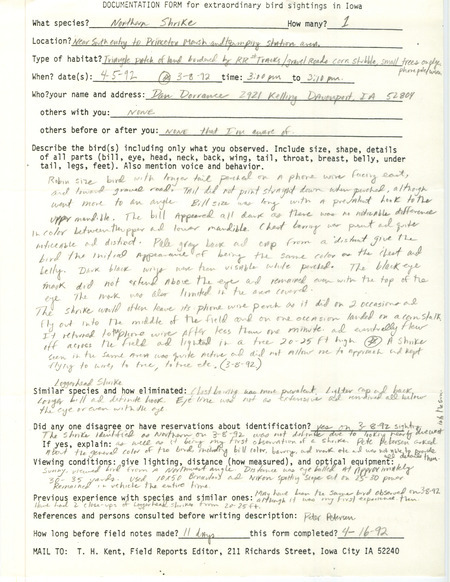 DOCUMENTATION FORM for extraordinary bird sightings in Iowa
What species? Northern Shrike How many? 1
Location? Near South entry to Princeton Marsh and pumping station area.
Type of habitat? Triangle patch of land bordered by RR Tracks/gravel roads corn stubble, small trees on edge,
phone pole/wires
When? date(s): 4-5-92 @ 3-8-92 time: 3:00 pm to 3:10 pm.
Who? your name and address: Dan Dorrance 2921 Kelling Davenport, IA 52804
others with you: NONE
others before or after you: NONE that I'm aware of.
Describe the bird(s) including only what you observed. Include size, shape, details
of all parts (bill, eye, head, neck, back, wing, tail, throat, breast, belly, under
tail, legs, feet). Also mention voice and behavior.
Robin size bird with longer tail perched on a phone wire facing east,
and toward gravel road. Tail did not point straight down when perched, although
went more to an angle. Bill size was long with a prevalent hook to the
upper mandible. The bill appeared all dark as there was no noticeable difference
in color between upper and lower mandible. Chest barring was faint and quite
noticeable and distinct. Pale gray back and cap from a distant give the
bird the initial appearance of being the same color as the chest and
belly. Dark black wings were then visible while perched. The black eye
mask did not extend above the eye and remained even with the top of the
eye. The mask was also limited in the area covered.
The shrike would often leave its phone wire perch as it did on 2 occasions and
fly out into the middle of the field and on one occasion landed on a corn stalk.
It returned to phone wire after less than one minute and eventually flew
off across the field and lighted in a tree 20-25 ft high. A shrike
seen in the same area was quite active and did not allow me to approach and kept
flying to wires to tree, to tree etc. (3-8-92)
Loggerhead Shrike
Similar species and how eliminated: Chest barring was more prevalent, lighter cap and back,
longer bill and definite hook. Eye line was not as extensive and remained all below
the eye or even with the eye
Did any one disagree or have reservations about identification? yes on 3-8-92 sighting
The shrike identified as Northern on 3-8-92 was not definite due to looking nearly
If yes, explain: as well as it being my first observation of a shrike. Pete Petersen asked
about the general color of the bird including bill color, barring, and mask etc and was not able to provide
all details then
Viewing conditions: give lighting, distance (how measured), and optical equipment:
Sunny, viewed bird from a Northwest angle. Distance was eye balled at approximately
30-35 yards. Used 10x50 Broadhead and Nixon spotting scope set on 25-30 power
Remained in vehicle the entire
Previous experience with species and similar ones: May have been the same bird observed on 3-8-92
although it was my first experience then
Have had 2 close-ups of Loggerhead Shrikes from 20-25 ft.
References and persons consulted before writing description: Pete Petersen
How long before field notes made? 11 days this form completed? 4-16-92
MAIL TO: T. H. Kent, Field Reports Editor, 211 Richards Street, Iowa City IA 52240